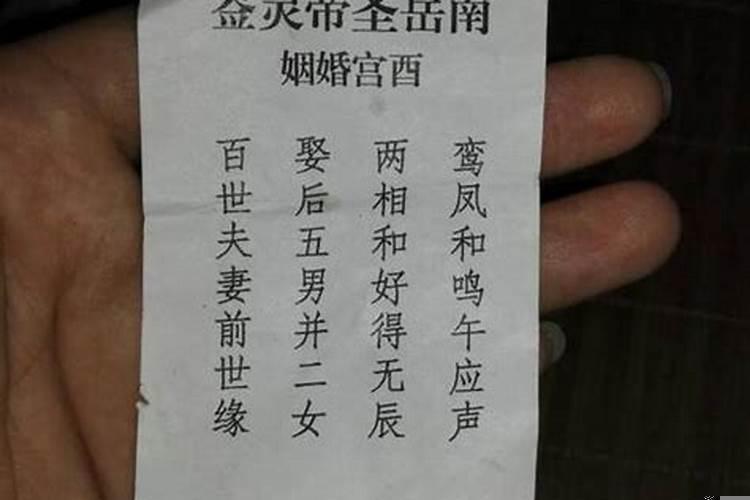 南岳圣帝灵签
酉宫婚姻
鸾凤和鸣午应声
两相和好得无辰
娶后五男并二女
百世夫妻前世缘